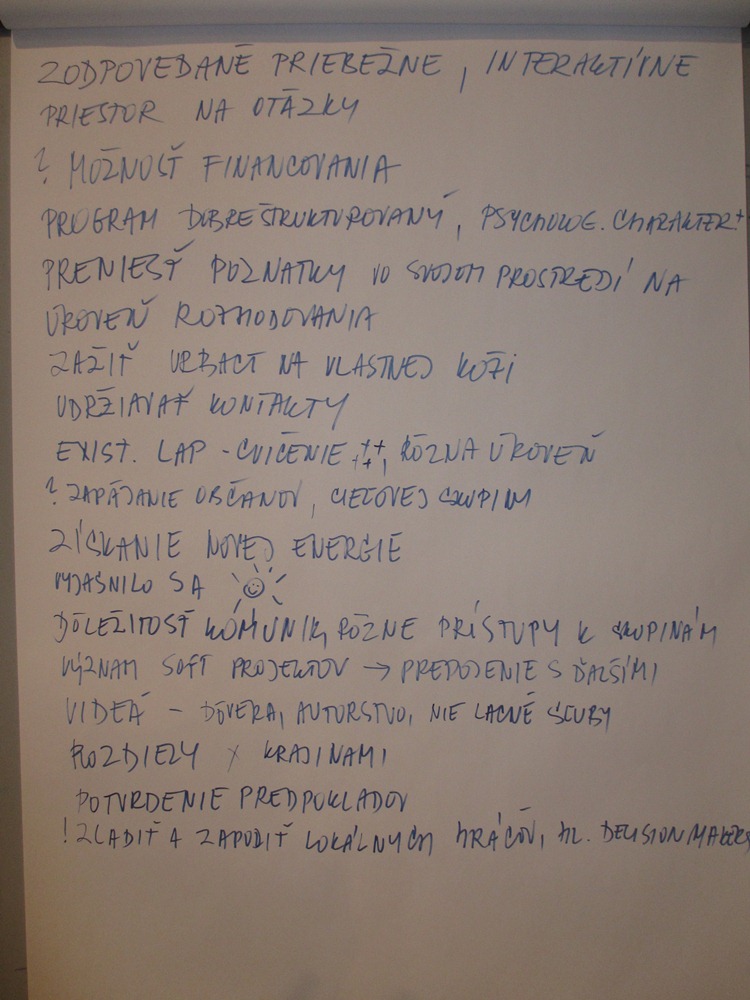 ZODPOVEDANÉ PRIEBEŽNE, INTERAKTÍVNE
PRIESTOR NA OTÁZKY
? MOŽNOSŤ FINANCOVANIA
PROGRAM DOBREŠTRUKTUROVANÝ, PSYCHOLOG. CHARAKTER +
PRENIESŤ POZNATKY VO SVOJOM PROSTREDÍ NA
ÚROVEŇ ROZHODOVANIA
ZAŽIŤ URBACT NA VLASTNEJ KOŽI
UDRŽIAVAŤ KONTAKTY
EXIST. LAP - CVIČENIE ++++, RÔZNA ÚROVEŇ
? ZAPÁJANIE OBČANOV, CIEĽOVEJ SKUPINY
ZÍSKANIE NOVEJ ENERGIE
VYJASNILO SA
DÔLEŽITOSŤ KOMUNIK, RÔZNE PRÍSTUPY K SKUPINÁM
VÝZNAM SOFT PROJEKTOV → PREPOJENIE S ĎALŠÍMI
VIDEÁ - DÔVERA, AUTORSTVO, NIE LACNÉ SĽUBY
ROZDIELY X KRAJINAMI
POTVRDENIE PREDPOKLADOV
! ZLADIŤ A ZAPOJIŤ LOKÁLNYCH HRÁČOV, HL. DECISION MAKERS